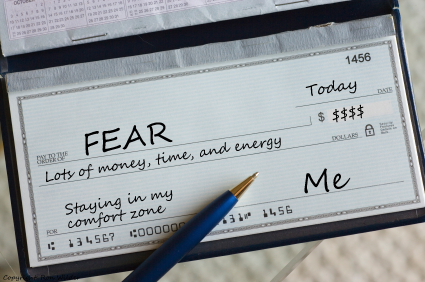 OCTOBER
1456
Today
DATE
PAY TO THE
ORDER OF
FEAR
$ $$$$
Lots of money, time, and energy
DOLLARS
Staying in my
comfort zone
FOR
Me
1456